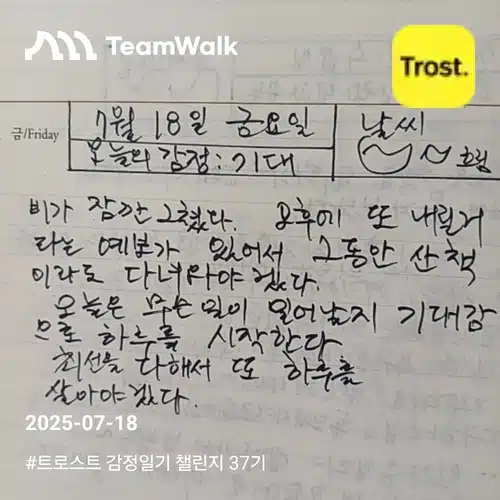 TeamWalk
Trost.
금/Friday
7월 18일 금요일
날씨
오늘의 감정: 기대
흐림
비가 잠깐 그쳤다. 오후에 또 내릴거
라는 예보가 있어서 그동안 산책
이라도 다녀와야겠다.
오늘은 무슨일이 일어날지 기대감
으로 하루를 시작한다
최선을 다해서 또 하루를
살아야겠다.
2025-07-18
#트로스트 감정일기 챌린지 37기